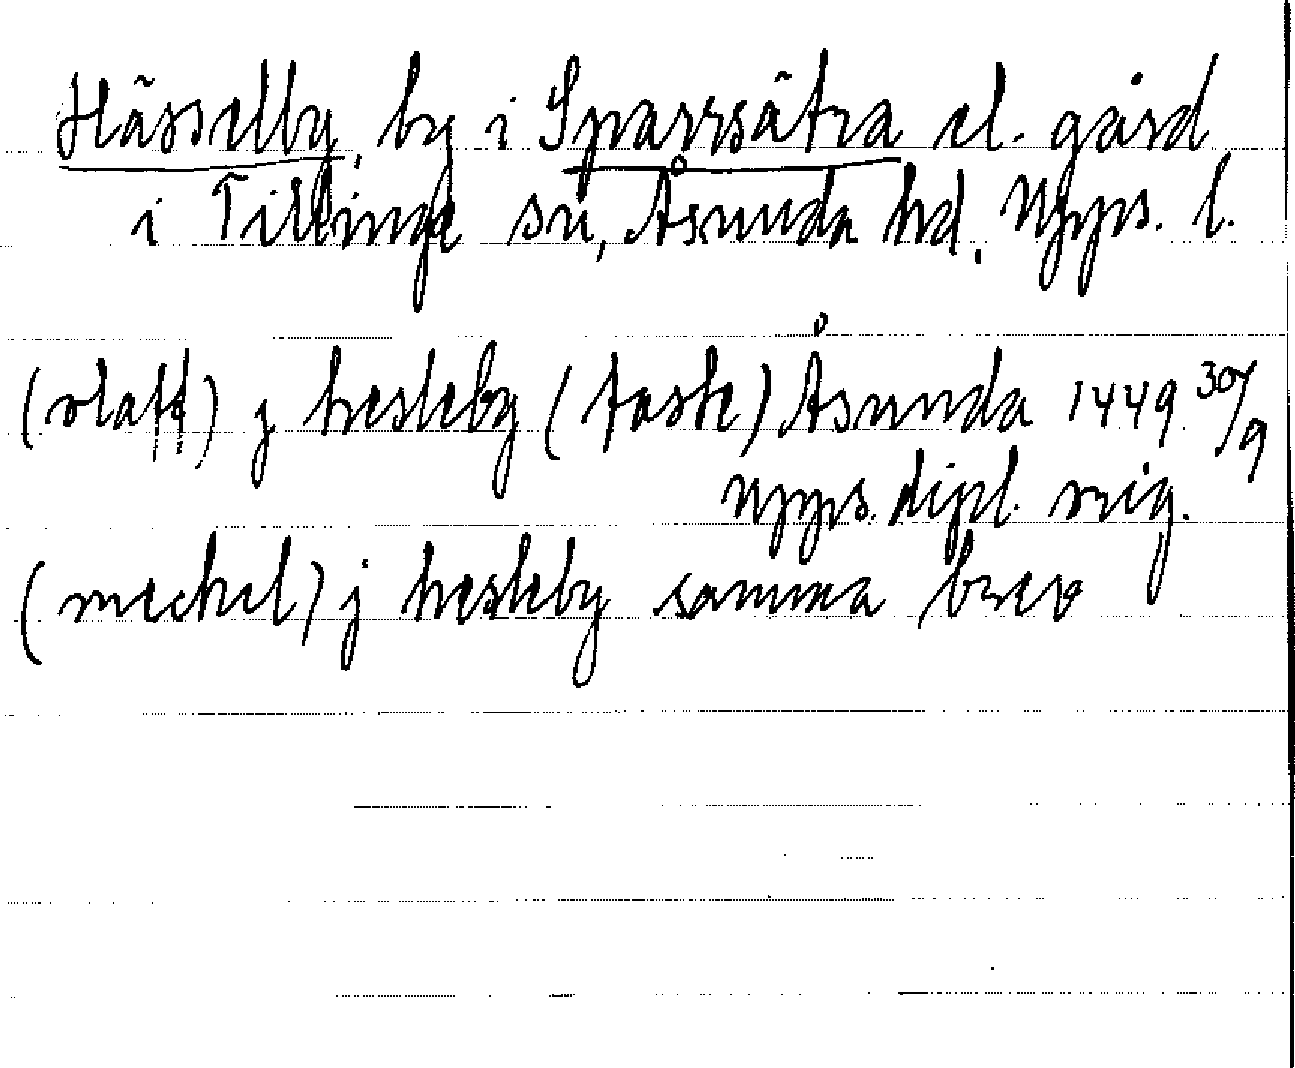 Hässelby, by i Sparrsätra el. gård
i Tillinge sn, Åsunda hd, Upps. l.
(olaff) j hesleby (fastæ) Åsunda 1449 30/9
Upps. dipl. orig.
(mechel) j hesleby samma brev